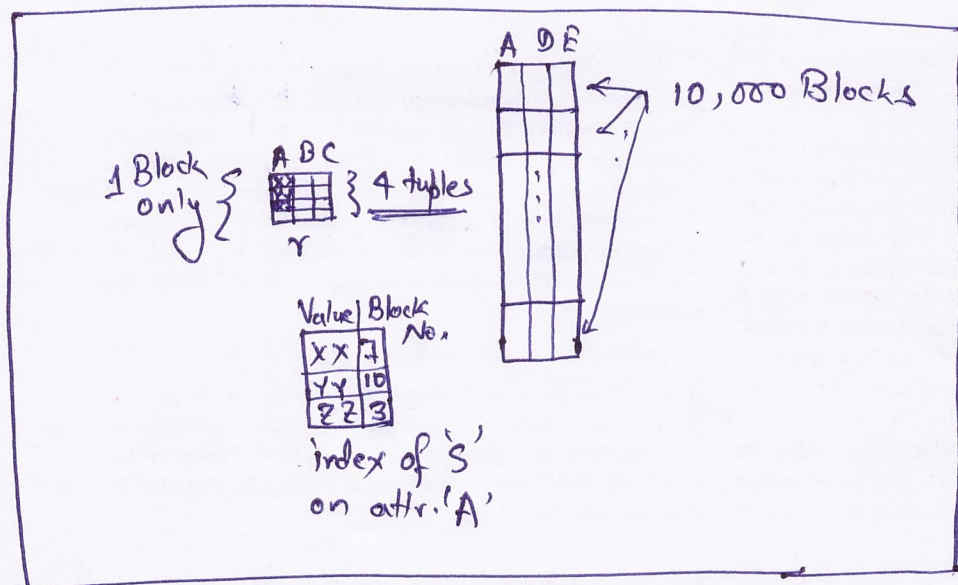 A D E
10,000 Blocks
1 Block
only
A B C
4 tuples
r
Value Block
No.
XX 7
YY 10
ZZ 3
index of 'S'
on attr. 'A'